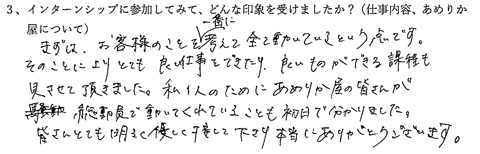 3、インターンシップに参加してみて、どんな印象を受けましたか？（仕事内容、あめりか
屋について）
一番に
まずは、お客様のことを考えて全て動いているという点です。
そのことにより とても良い仕事をできたり、良いものができる課程も
見させて頂きました。私1人のためにあめりか屋の皆さんが
総動員で動いてくれていることも初日で分かりました。
皆さんとても明るく優しく接して下さり本当にありがとうございます。